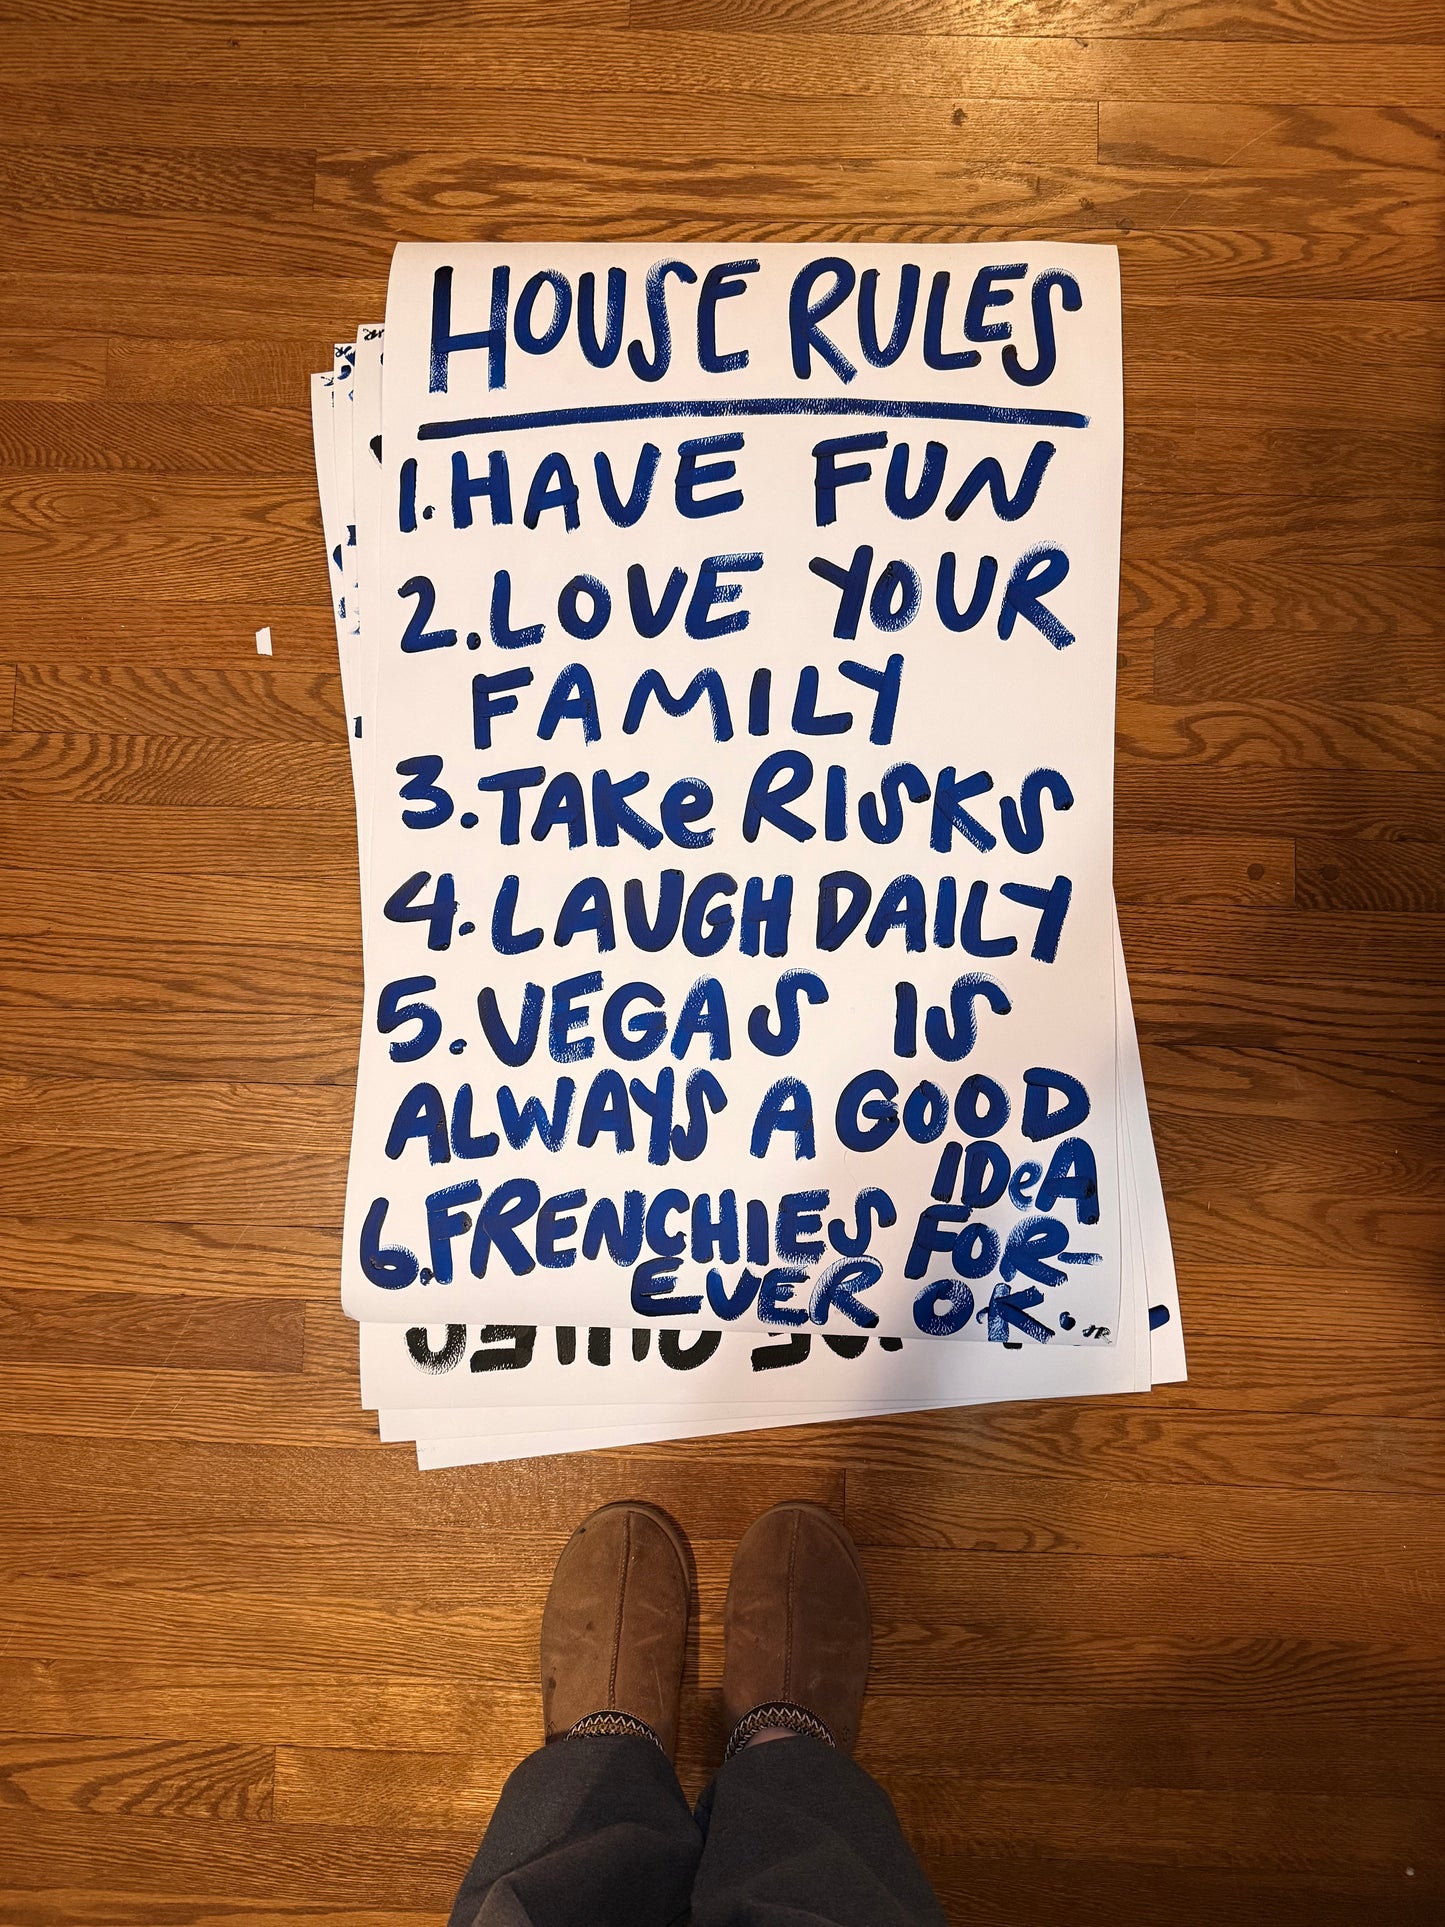 HOUSE RULES
1. HAVE FUN
2. LOVE YOUR
FAMILY
3. TAKe RISKS
4. LAUGH DAILY
5. VEGAS IS
ALWAYS A GOOD
IDeA
6. FRENCHIES FOR-
EVER OK.
JR